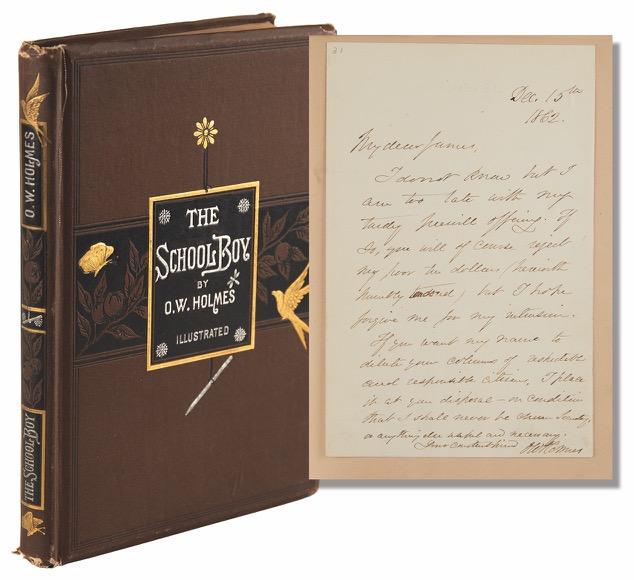 O.W. HOLMES
THE SCHOOL BOY
THE
SCHOOL BOY
BY
O.W. HOLMES
ILLUSTRATED
31
Dec. 15th
1862.
My dear James,
I do not know but I
am too late with my
tardy freewill offering. If
so, you will of course reject
my poor ten dollars, herewith
humbly tendered, but I hope
forgive me for my intrusion.
If you want my name to
dilute your columns of respectable
and responsible citizens, I place
it at your disposal – on condition
that I shall never be chosen Secretary
or anything else useful and necessary.
O W Holmes